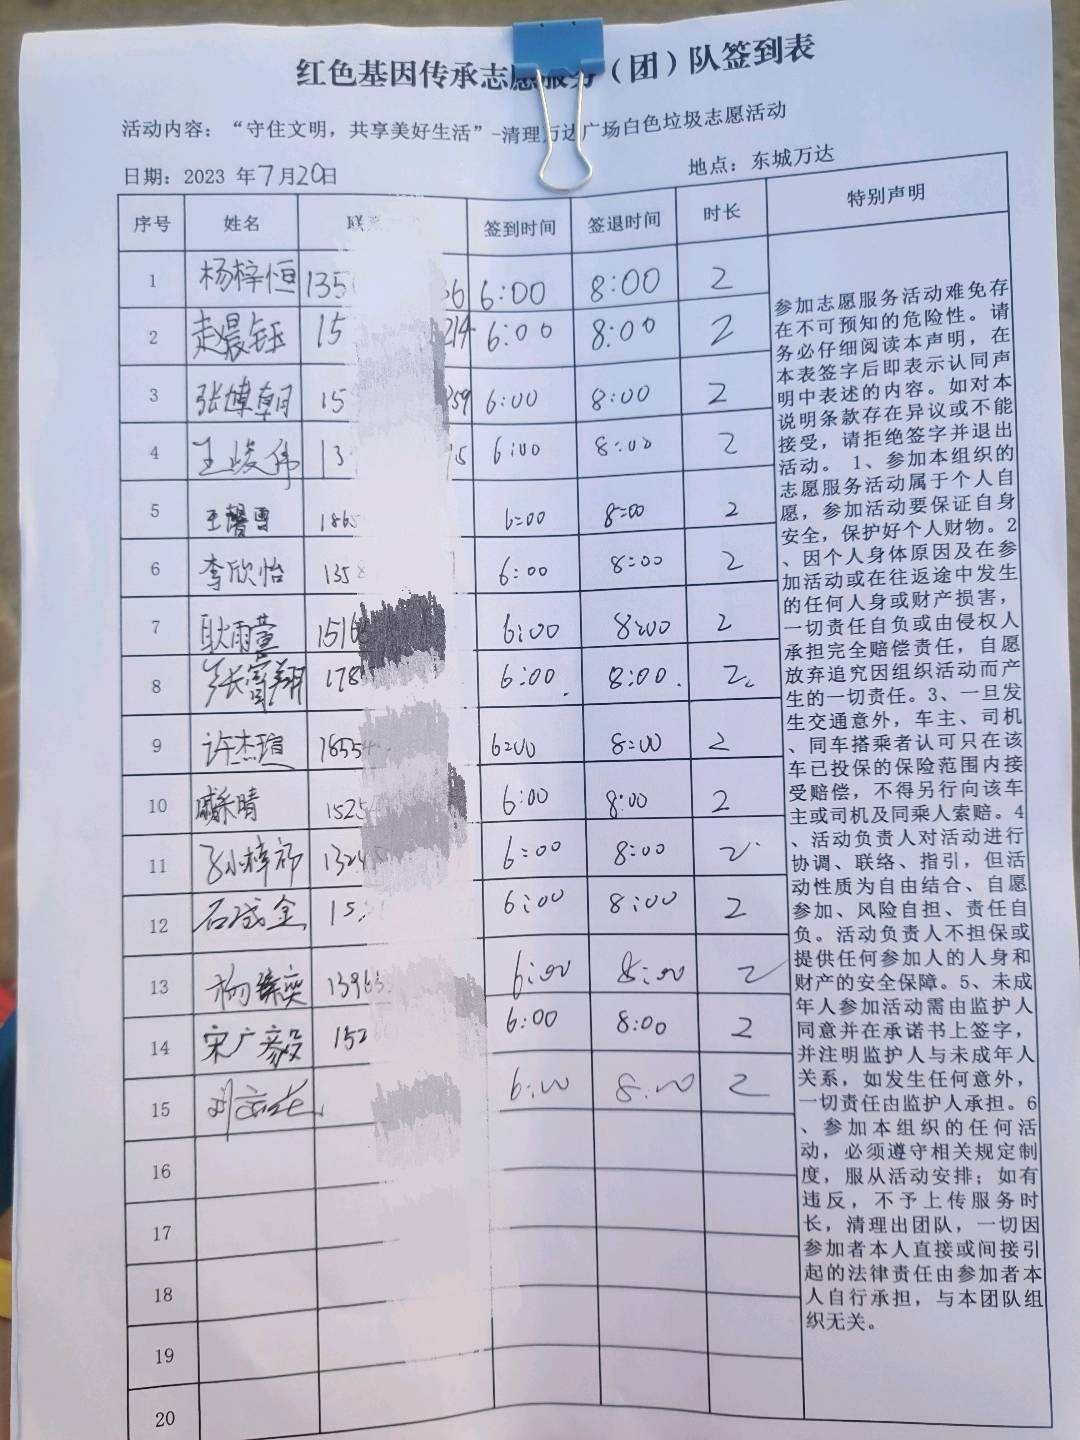 红色基因传承志愿服务（团）队签到表
活动内容：“守住文明，共享美好生活”-清理万达广场白色垃圾志愿活动
日期：2023 年7月20日
地点：东城万达
序号 姓名 联 签到时间 签退时间 时长 特别声明
1 杨梓恒 135 36 6:00 8:00 2
2 赵晨钰 15 214 6:00 8:00 2
3 张博朝 15 359 6:00 8:00 2
4 王峻伟 13 15 6:00 8:00 2
5 王 1865 6:00 8:00 2
6 李欣怡 1358 6:00 8:00 2
7 耿雨萱 1516 6:00 8:00 2
8 178 6:00 8:00 2
9 许杰瑄 18554 6:00 8:00 2
10 戚禾晴 1525 6:00 8:00 2
11 1324 6:00 8:00 2
12 石成金 15 6:00 8:00 2
13 杨 奕 13963 6:00 8:00 2
14 宋广毅 152 6:00 8:00 2
15 刘 6:00 8:00 2
16
17
18
19
20
参加志愿服务活动难免存
在不可预知的危险性。请
务必仔细阅读本声明，在
本表签字后即表示认同声
明中表述的内容。如对本
说明条款存在异议或不能
接受，请拒绝签字并退出
活动。 1、参加本组织的
志愿服务活动属于个人自
愿，参加活动要保证自身
安全，保护好个人财物。2
、因个人身体原因及在参
加活动或在往返途中发生
的任何人身或财产损害，
一切责任自负或由侵权人
承担完全赔偿责任，自愿
放弃追究因组织活动而产
生的一切责任。3、一旦发
生交通意外，车主、司机
、同车搭乘者认可只在该
车已投保的保险范围内接
受赔偿，不得另行向该车
主或司机及同乘人索赔。4
、活动负责人对活动进行
协调、联络、指引，但活
动性质为自由结合、自愿
参加、风险自担、责任自
负。活动负责人不担保或
提供任何参加人的人身和
财产的安全保障。5、未成
年人参加活动需由监护人
同意并在承诺书上签字，
并注明监护人与未成年人
关系，如发生任何意外，
一切责任由监护人承担。6
、参加本组织的任何活
动，必须遵守相关规定制
度，服从活动安排；如有
违反，不予上传服务时
长，清理出团队，一切因
参加者本人直接或间接引
起的法律责任由参加者本
人自行承担，与本团队组
织无关。